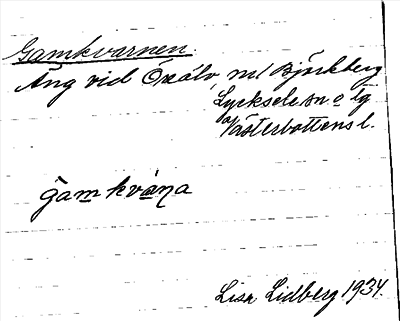 Gamkvarnen.
Äng vid Öreälv, m/ Björkberg
Lycksele sn o lg
av Västerbottens l.
gamkvàṇa
Lisa Lidberg 1934.